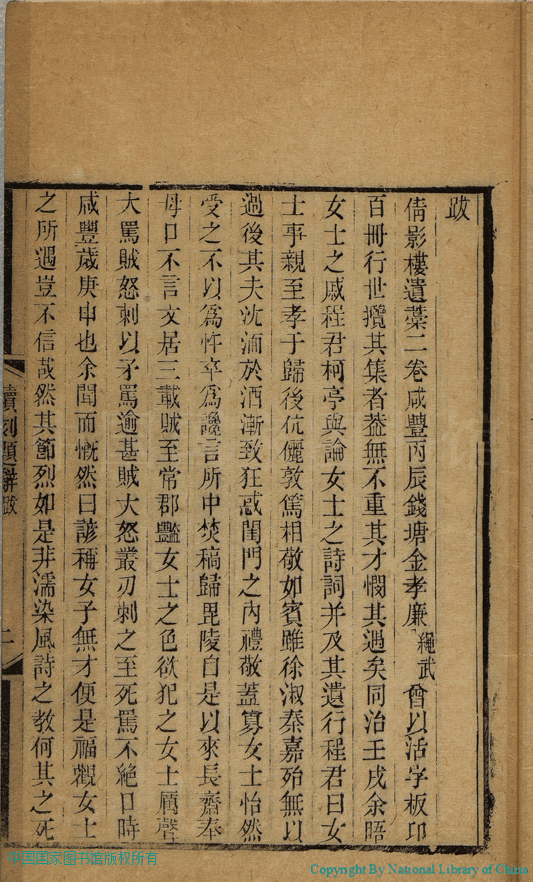 跋
倩影樓遺藁二卷咸豐丙辰錢塘金孝廉繩武曾以活字板印
百冊行世攬其集者葢無不重其才憫其遇矣同治壬戌余晤
女士之戚程君柯亭與論女士之詩詞并及其遺行程君曰女
士事親至孝于歸後伉儷敦篤相敬如賓雖徐淑秦嘉殆無以
過後其夫沈湎於酒漸致狂惑閨門之內禮敬蓋算女士怡然
受之不以爲忤卒爲讒言所中焚稿歸毘陵自是以來長齋奉
母口不言文居三載賊至常郡豔女士之色欲犯之女士厲聲
大罵賊怒刺以矛罵逾甚賊大怒叢刃刺之至死罵不絕口時
咸豐歲庚申也余聞而慨然曰諺稱女子無才便是福觀女士
之所遇豈不信哉然其節烈如是非濡染風詩之教何其之死
續刻題辭跋
二
中国国家图书馆版权所有
Copyright By National Library of China